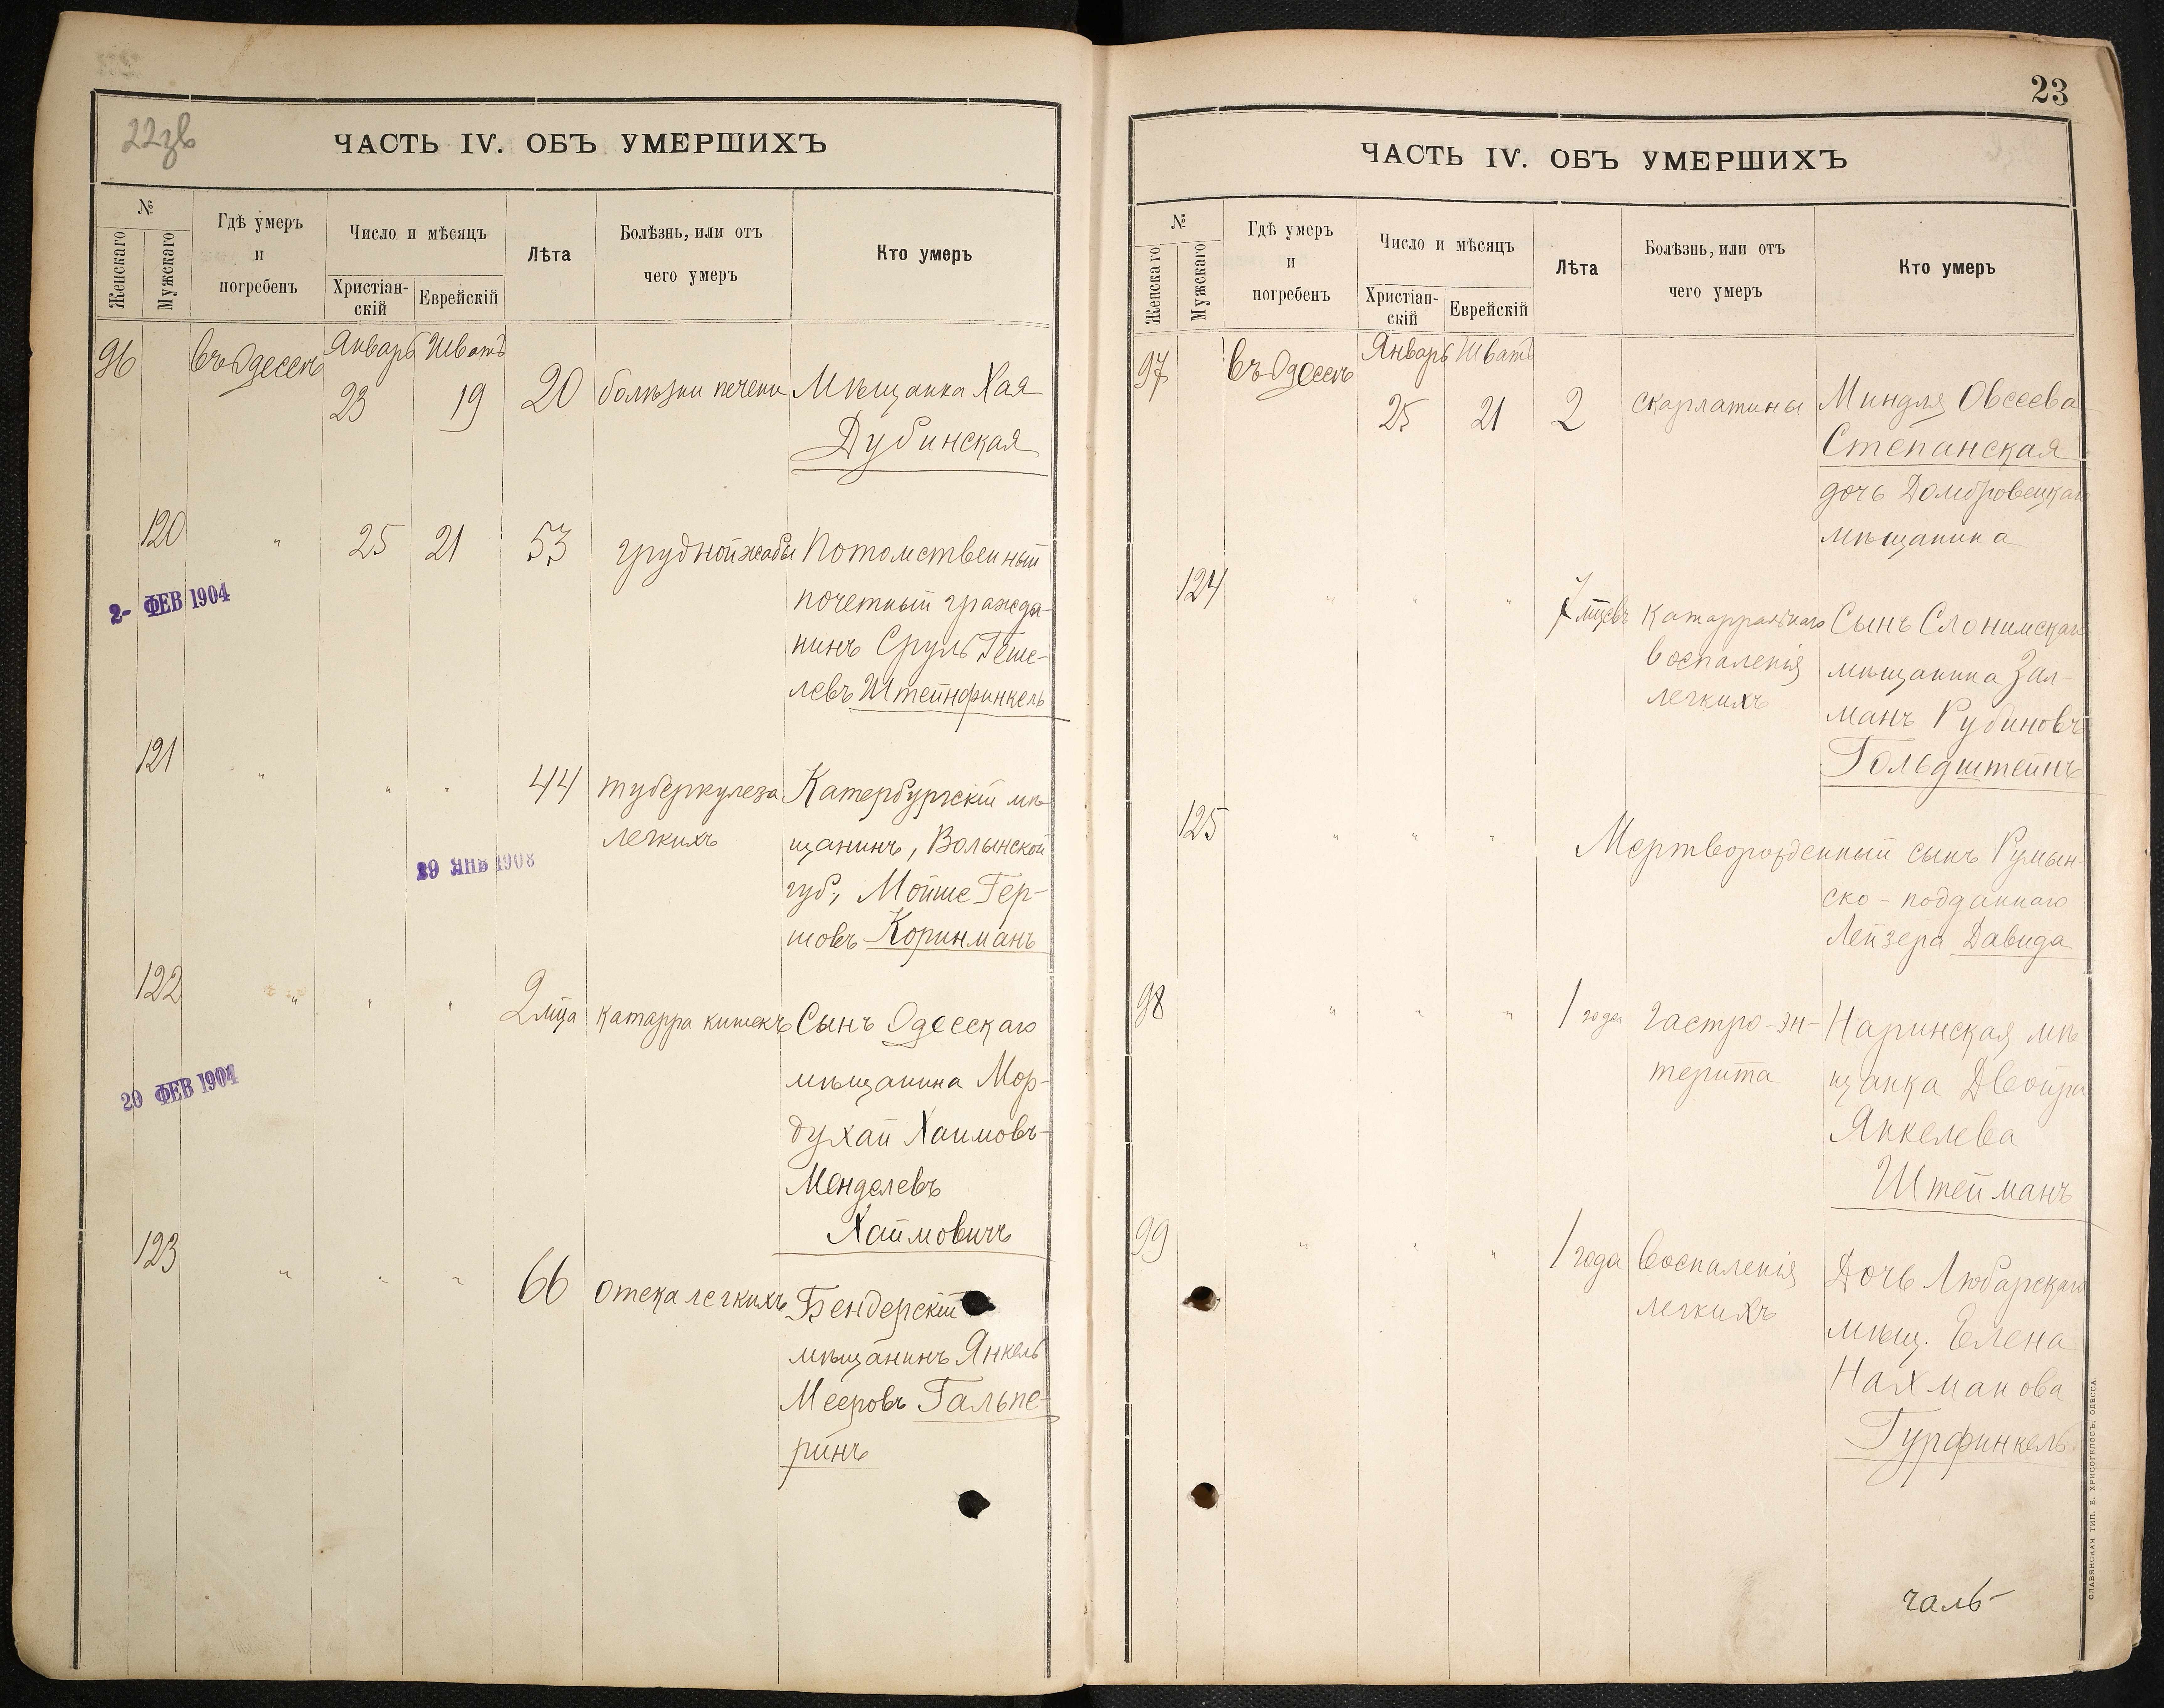 22зв
ЧАСТЬ IV. ОБЪ УМЕРШИХЪ
№
Женскаго
Мужскаго
Гдѣ умеръ
и
погребенъ
Число и мѣсяцъ
Христіан-
скій
Еврейскій
Лѣта
Болѣзнь, или отъ
чего умеръ
Кто умеръ
96 въ Одессѣ Январь Шватъ
23 19 20 болѣзни печени Мѣщанка Хая
Дубинская
120 " 25 21 53 грудной жабы Потомственный
почетный гражда-
нинъ Сруль Геше-
левъ Штейнфинкель
2- ФЕВ 1904
121 " " " 44 туберкулеза Катербургскій мѣ-
легкихъ щанинъ, Волынской
губ., Мойше Гер-
шовъ Коринманъ
29 ЯНВ 1908
122 " " " 2 мца катарра кишекъ Сынъ Одесскаго
мѣщанина Мор-
духай Хаимовъ-
Менделевъ
Хаймовичъ
20 ФЕВ 1904
123 " " " 66 отека легкихъ Бендерскій
мѣщанинъ Янкель
Мееровъ Гальпе-
ринъ
23
ЧАСТЬ IV. ОБЪ УМЕРШИХЪ
№
Женскаго
Мужскаго
Гдѣ умеръ
и
погребенъ
Число и мѣсяцъ
Христіан-
скій
Еврейскій
Лѣта
Болѣзнь, или отъ
чего умеръ
Кто умеръ
97 въ Одессѣ Январь Шватъ
25 21 2 скарлатины Миндля Овсеева
Степанская
дочь Домбровецкаго
мѣщанина
124 " " " 7 мцевъ катарральнаго Сынъ Слонимскаго
воспаленія мѣщанина Зал-
легкихъ манъ Рубиновъ
Гольдштейнъ
125 " " " Мертворожденный сынъ Румын-
ско-подданнаго
Лейзера Давида
98 " " " 1 года гастро-эн- Наринская мѣ
терита щанка Двойра
Янкелева
Штейманъ
99 " " " 1 года воспаленія Дочь Любарскаго
легкихъ мѣщ. Елена
Нахманова
Гурфинкель
СЛАВЯНСКАЯ ТИП. Е. ХРИСОГЕЛОСЪ, ОДЕССА.